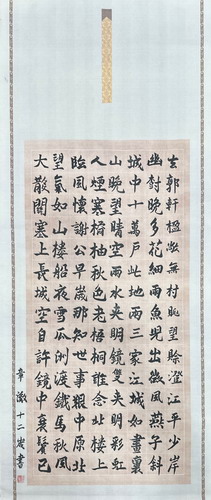 去郭軒楹敞無村眺望賒澄江平少岸
幽樹晚多花細雨魚兒出微風燕子斜
城中十萬戶此地兩三家江城如畫裏
山晚望晴空兩水夾明鏡雙夾明彩虹
人煙寒橘柚秋色老梧桐誰念北樓上
臨風懷謝公早歲那知世事艱中原北
望氣如山樓船夜雪瓜洲渡鐵馬秋風
大散關塞上長城空自許鏡中衰鬢已
章澂十二歲書